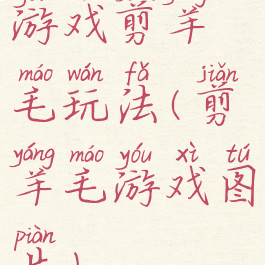 游戏剪羊
máo wán fǎ jiǎn
毛玩法(剪
yáng máo yóu xì tú
羊毛游戏图
piàn
片)